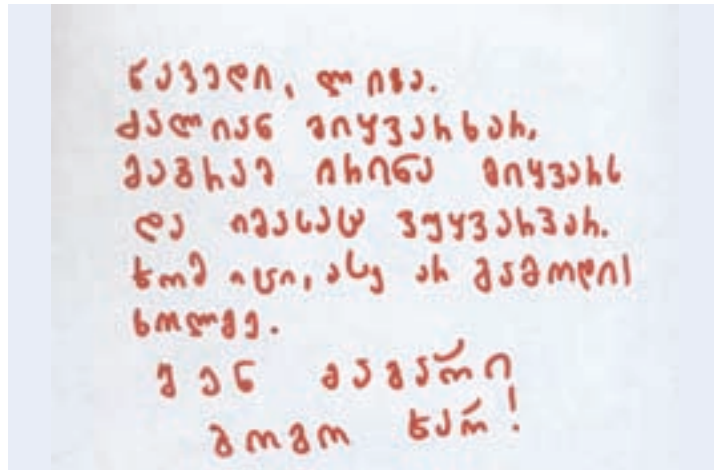 წავედი, ლიზა.
ძალიან მიყვარხარ,
მაგრამ ირინა მიყვარს
და იმასაც ვუყვარვარ.
ხომ იცი, ასე არ გამოდის
ხოლმე.
შენ მაგარი
გოგო ხარ!